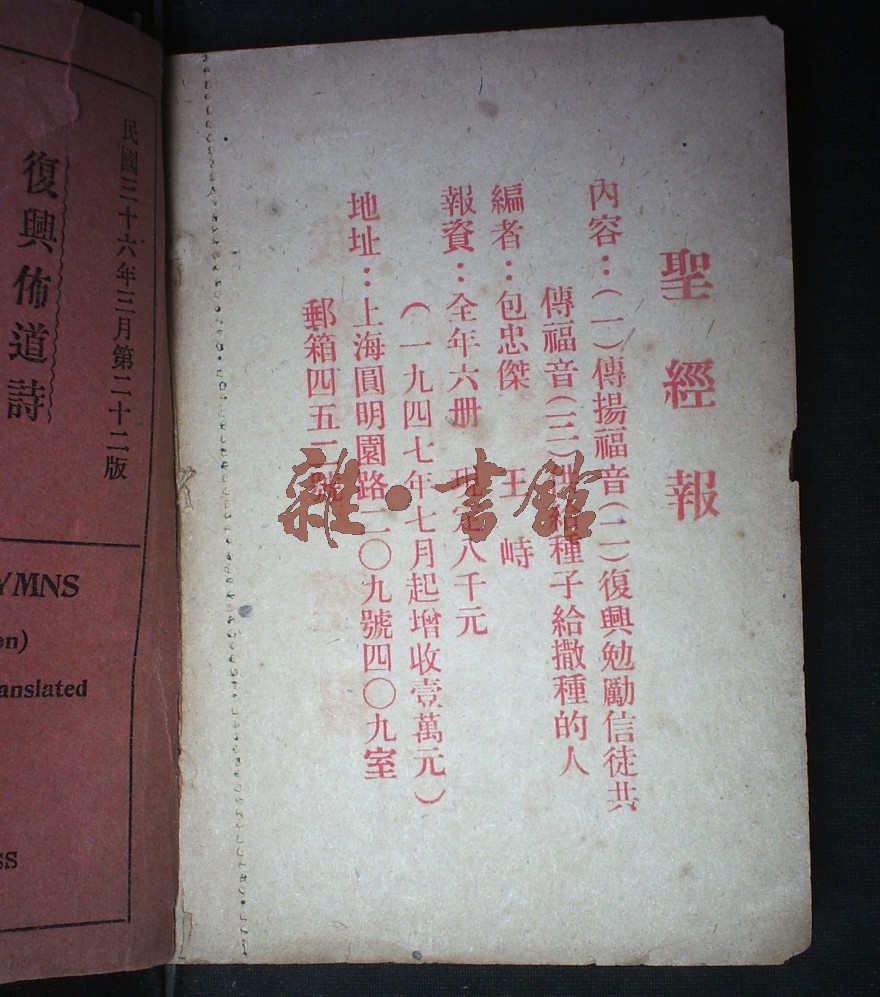 聖經報
內容：（一）傳揚福音（二）復興勉勵信徒共
傳福音（三）供給種子給撒種的人
編者：包忠傑 王峙
報資：全年六册 現定八千元
（一九四七年七月起增收壹萬元）
地址：上海圓明園路二〇九號四〇九室
郵箱四五二號
民國三十六年三月第二十二版
復興佈道詩
YMNS
on)
anslated
ss
雜·書館